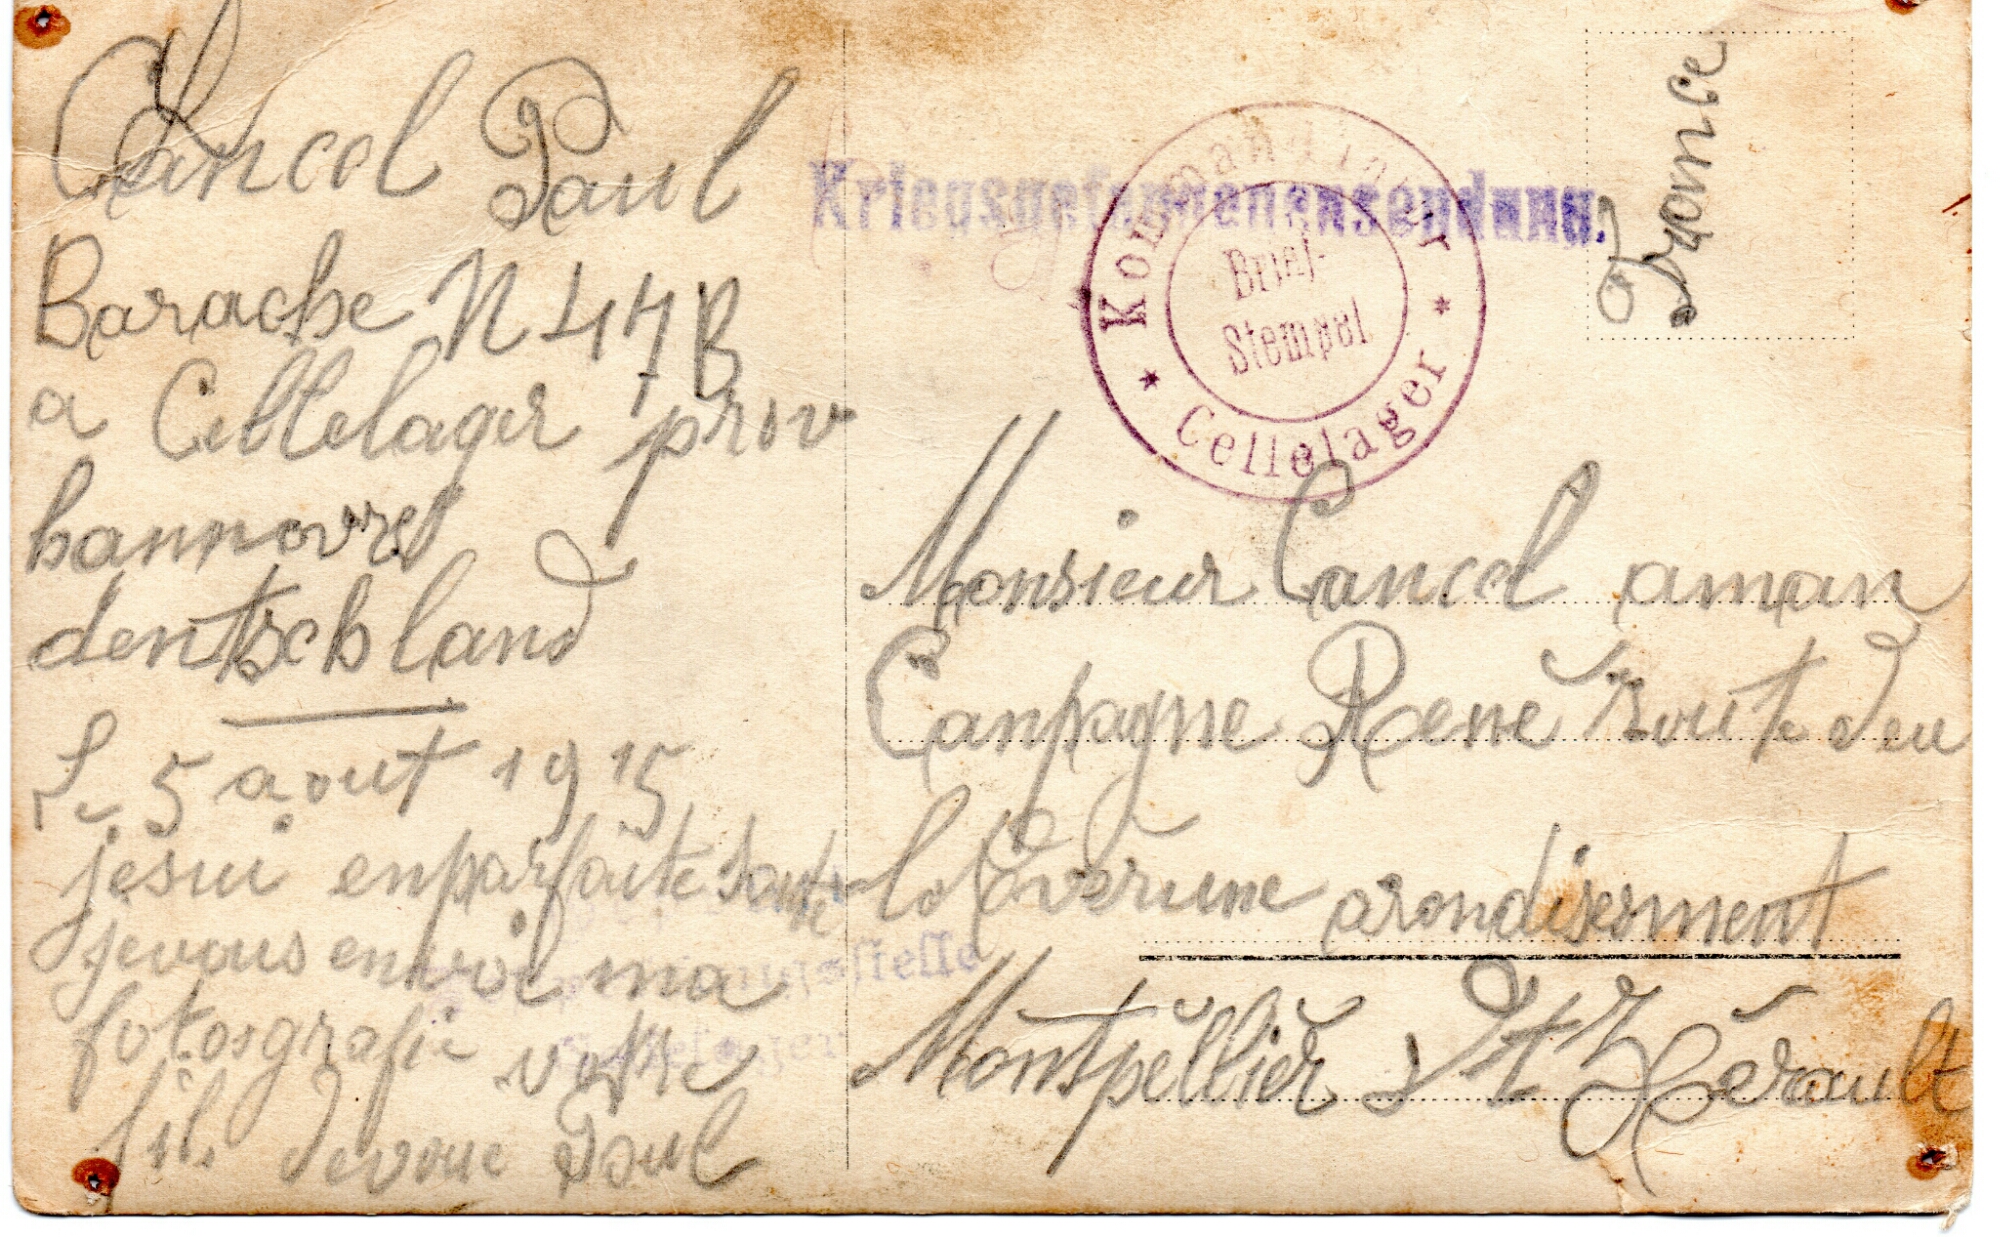 Cancel Paul
Barache N 47 B
a Celtelager prov
hannovre
dentschland
Le 5 aout 1915
jesui enparfaite sante
jevous envoi ma
fotosgrafie votre
fils devoue Paul
Kriegsgefangenensendung.
Kommandantur
Brief-
Stempel.
* Cellelager *
France
Monsieur Cancel aman
Canpagne René route deu
la Vérune arondisement
Montpéllier Dt Hérault